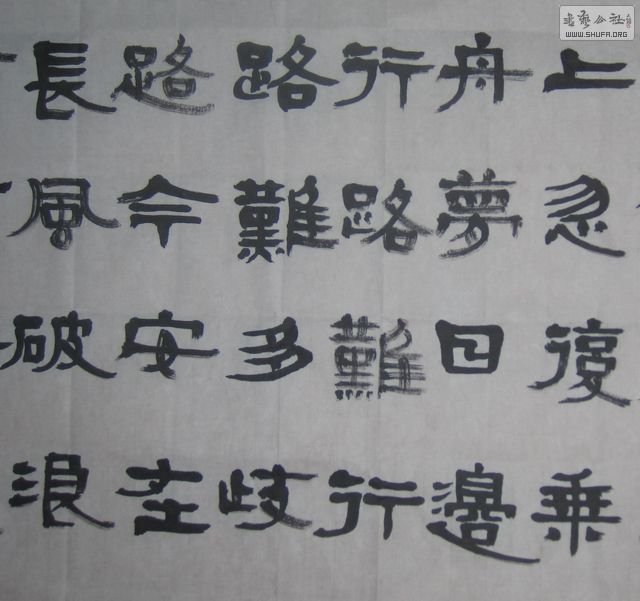 上忽復乘
舟夢日邊
行路難行
路難多歧
路今安在
長風破浪
书艺公社
WWW.SHUFA.ORG